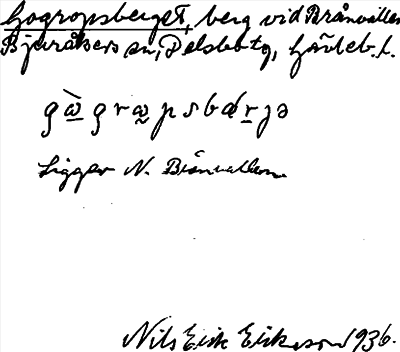 Gogropsberget, berg vid Brånvallen
Bjuråkers sn, Delsbo tg, Gävleb. l.
Ligger N. Brånvallen
Nils Erik Eriksson 1936.